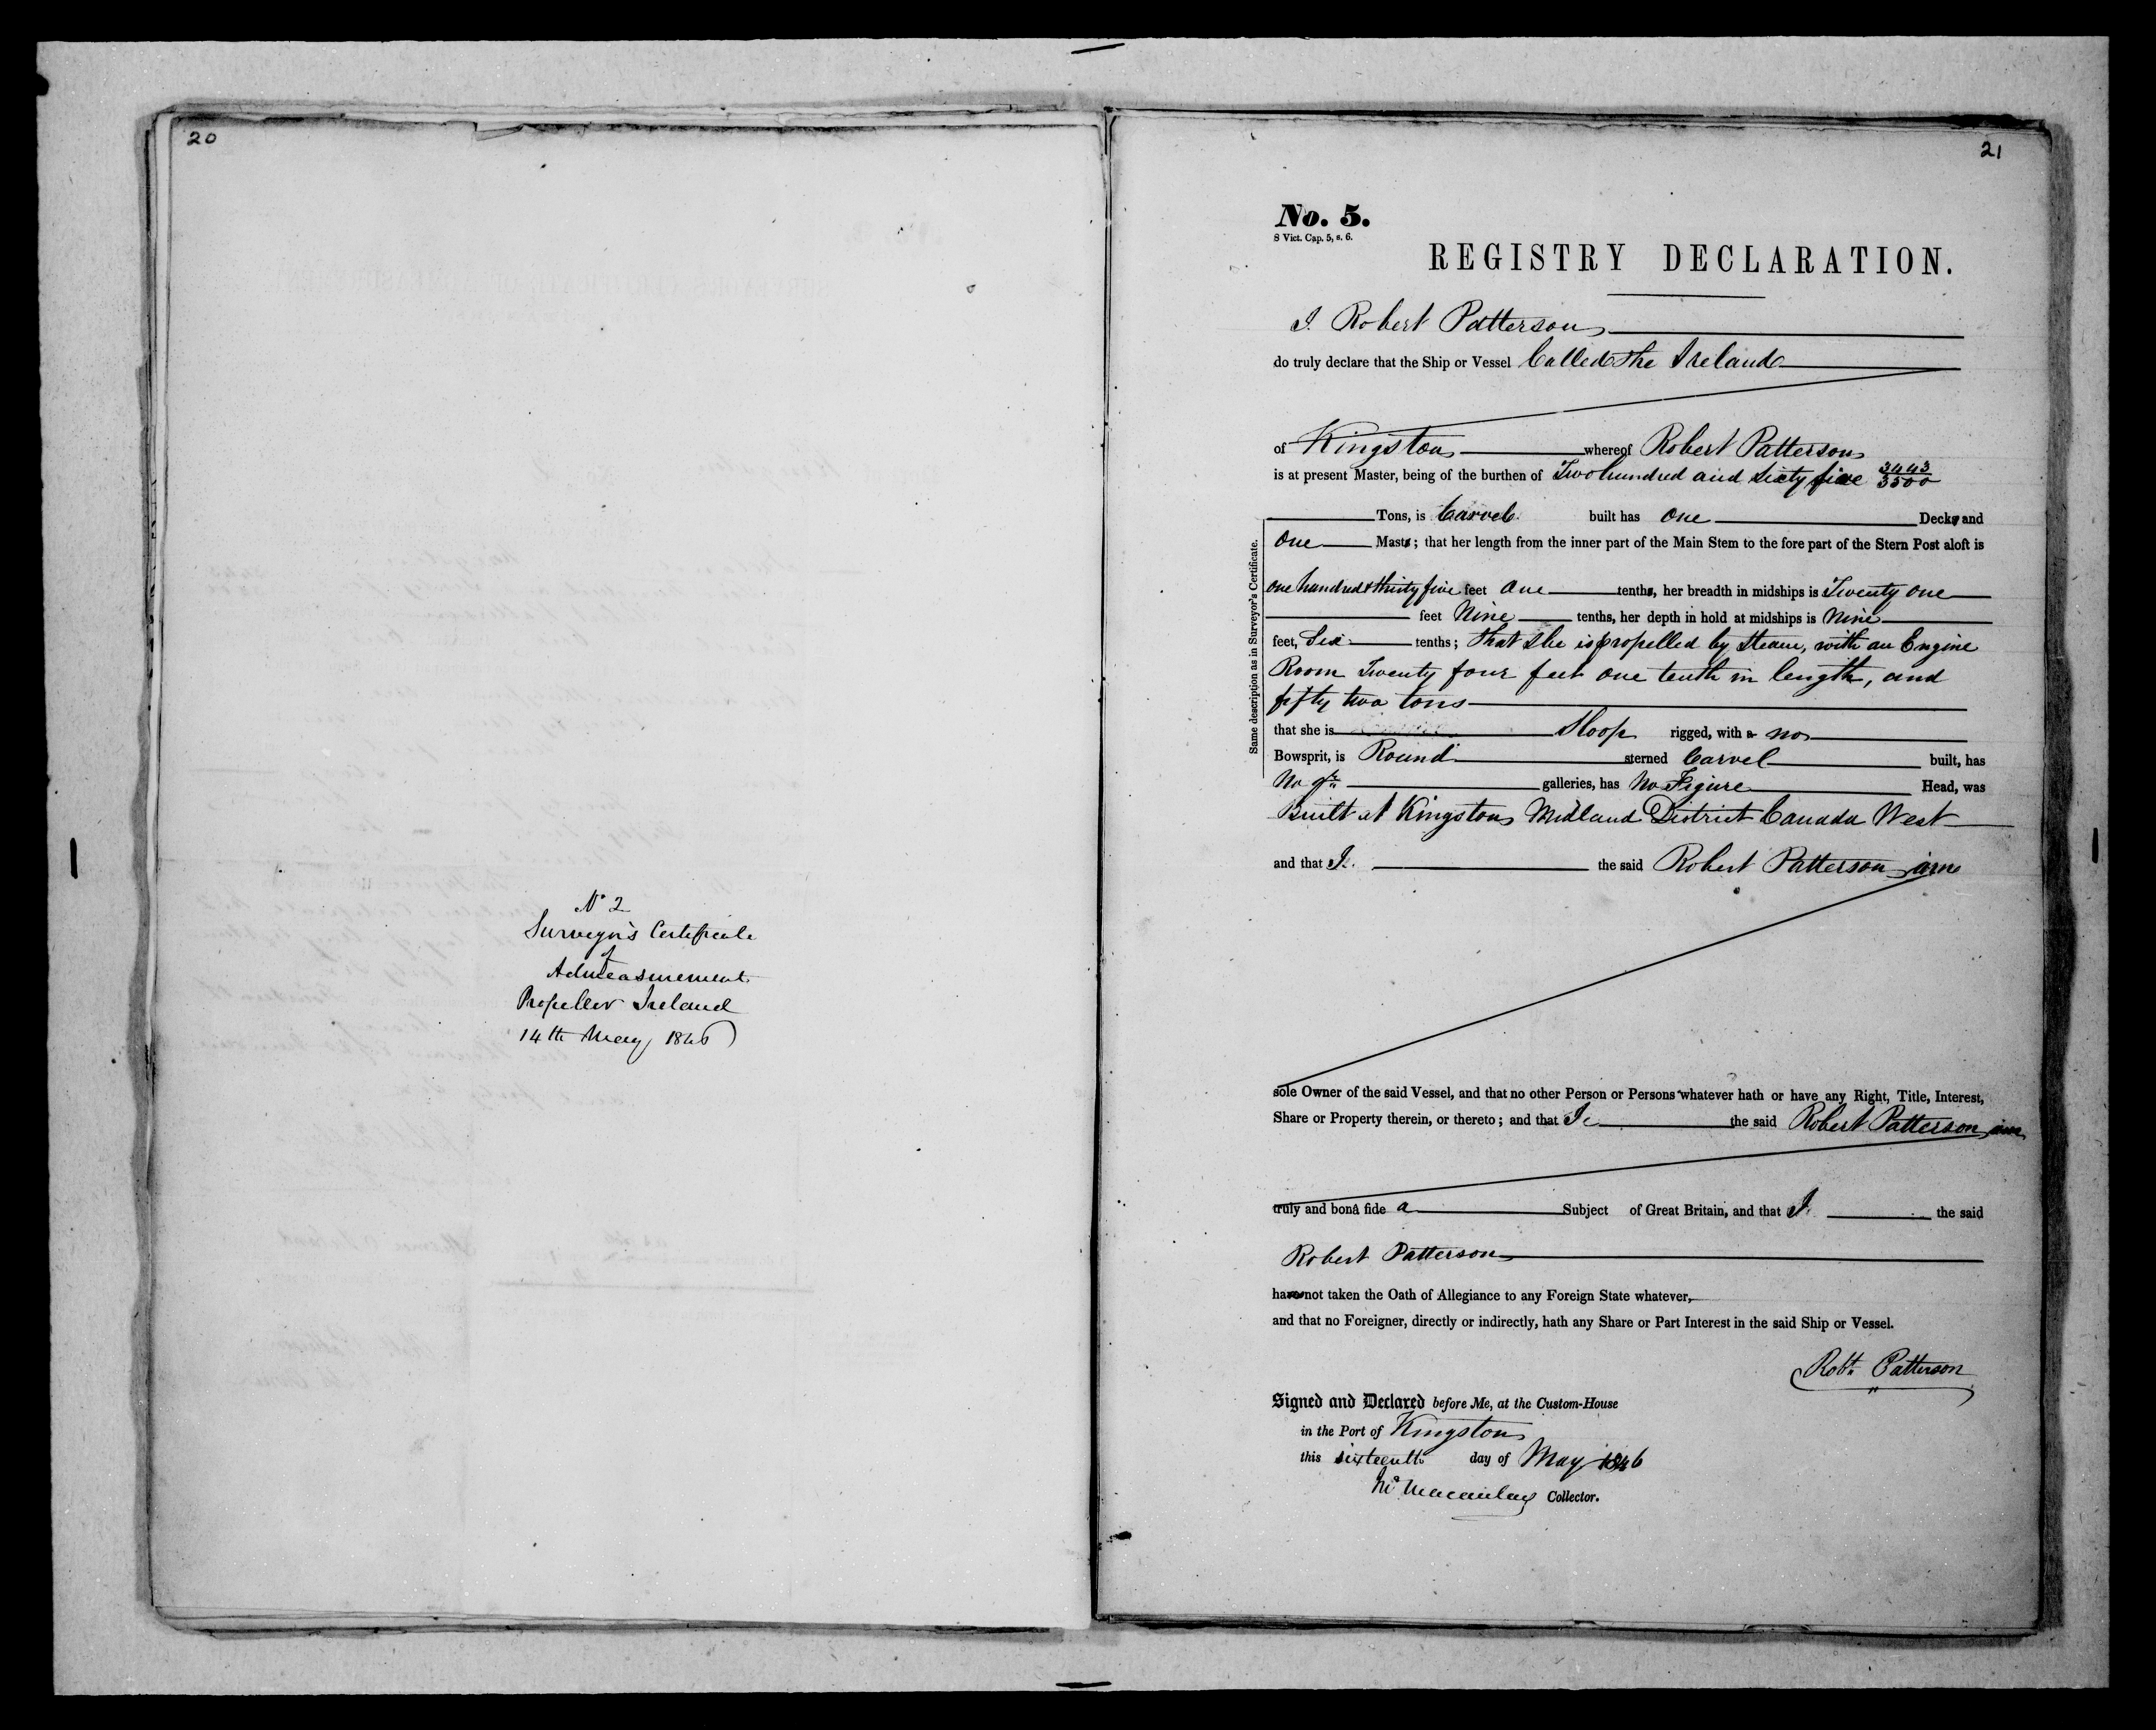 20
N° 2
Surveyor's Certificate
of
Admeasurement
Propeller Ireland
14th May 1846
21
No. 5.
8 Vict. Cap. 5, s. 6.
REGISTRY DECLARATION.
I Robert Patterson
do truly declare that the Ship or Vessel Called the Ireland
of Kingston whereof Robert Patterson
is at present Master, being of the burthen of Two hundred and Sixty five 3443/3500
Tons, is Carvel built has One Decks and
One Masts; that her length from the inner part of the Main Stem to the fore part of the Stern Post aloft is
one hundred & thirty five feet One tenths, her breadth in midships is Twenty one
feet Nine tenths, her depth in hold at midships is Nine
feet, Six tenths; that she is propelled by Steam, with an Engine
Room Twenty four feet one tenth in length, and
fifty two tons
that she is Sloop rigged, with a no
Bowsprit, is Round sterned Carvel built, has
No qr galleries, has No Figure Head, was
Built at Kingston Midland District Canada West
Same description as in Surveyor's Certificate.
and that I the said Robert Patterson am
sole Owner of the said Vessel, and that no other Person or Persons whatever hath or have any Right, Title, Interest,
Share or Property therein, or thereto; and that I the said Robert Patterson am
truly and bonâ fide a Subject of Great Britain, and that I the said
Robert Patterson
have not taken the Oath of Allegiance to any Foreign State whatever,
and that no Foreigner, directly or indirectly, hath any Share or Part Interest in the said Ship or Vessel.
Robt. Patterson
Signed and Declared before Me, at the Custom-House
in the Port of Kingston
this sixteenth day of May 1846
Macaulay Collector.